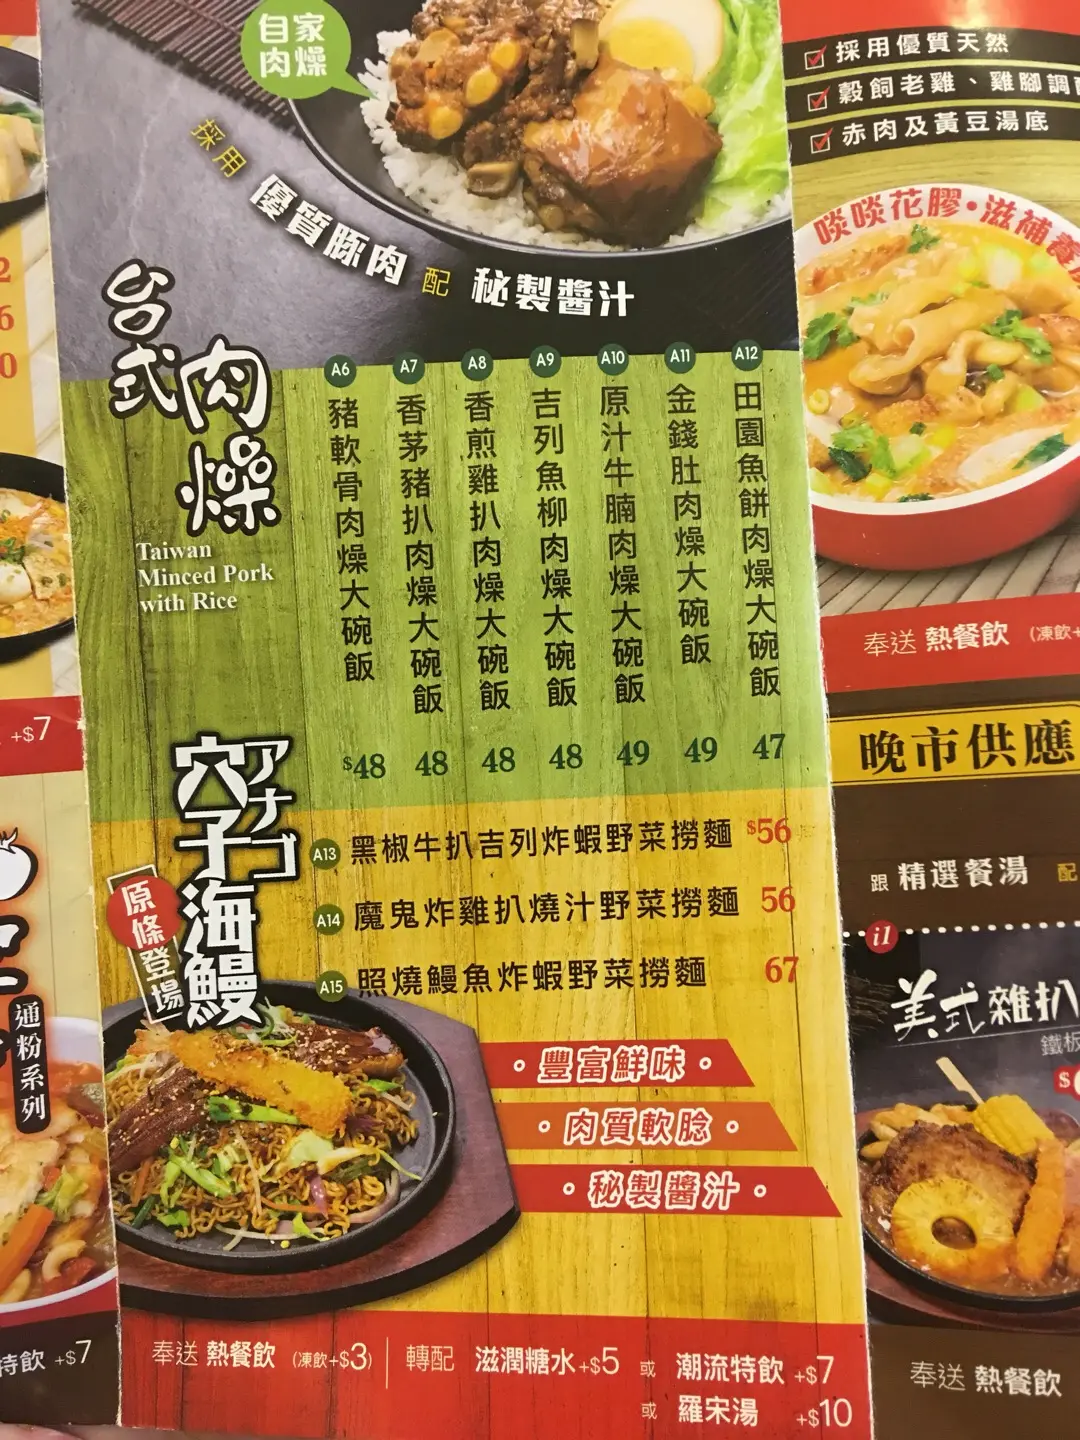 自家
肉燥
採用 優質豚肉 配 秘製醬汁
台式肉燥
Taiwan
Minced Pork
with Rice
A6
豬軟骨肉燥大碗飯
$48
A7
香茅豬扒肉燥大碗飯
48
A8
香煎雞扒肉燥大碗飯
48
A9
吉列魚柳肉燥大碗飯
48
A10
原汁牛腩肉燥大碗飯
49
A11
金錢肚肉燥大碗飯
49
A12
田園魚餅肉燥大碗飯
47
アナゴ
穴子海鰻
原條登場
A13 黑椒牛扒吉列炸蝦野菜撈麵 $56
A14 魔鬼炸雞扒燒汁野菜撈麵 56
A15 照燒鰻魚炸蝦野菜撈麵 67
• 豐富鮮味 •
• 肉質軟腍 •
• 秘製醬汁 •
奉送 熱餐飲 (凍飲+$3) 轉配 滋潤糖水+$5 或 潮流特飲 +$7
或 羅宋湯 +$10
採用優質天然
穀飼老雞、雞腳調
赤肉及黃豆湯底
啖啖花膠•滋補養
奉送 熱餐飲 (凍飲+
晚市供應
跟 精選餐湯 配
i1
美式雜扒
鐵板
$
奉送 熱餐飲
2
6
0
+$7
通粉系列
特飲 +$7